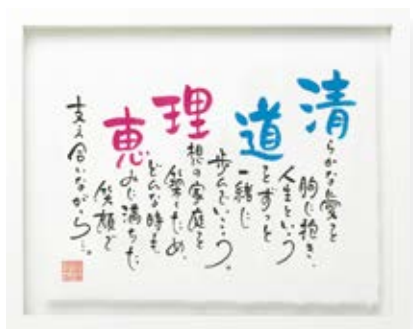 清らかな愛を
胸に抱き、
人生という
道をずっと
一緒に
歩んでいこう。
理想の家庭を
築くため、
どんな時も
恵みに満ちた
笑顔で
支え合いながら…。